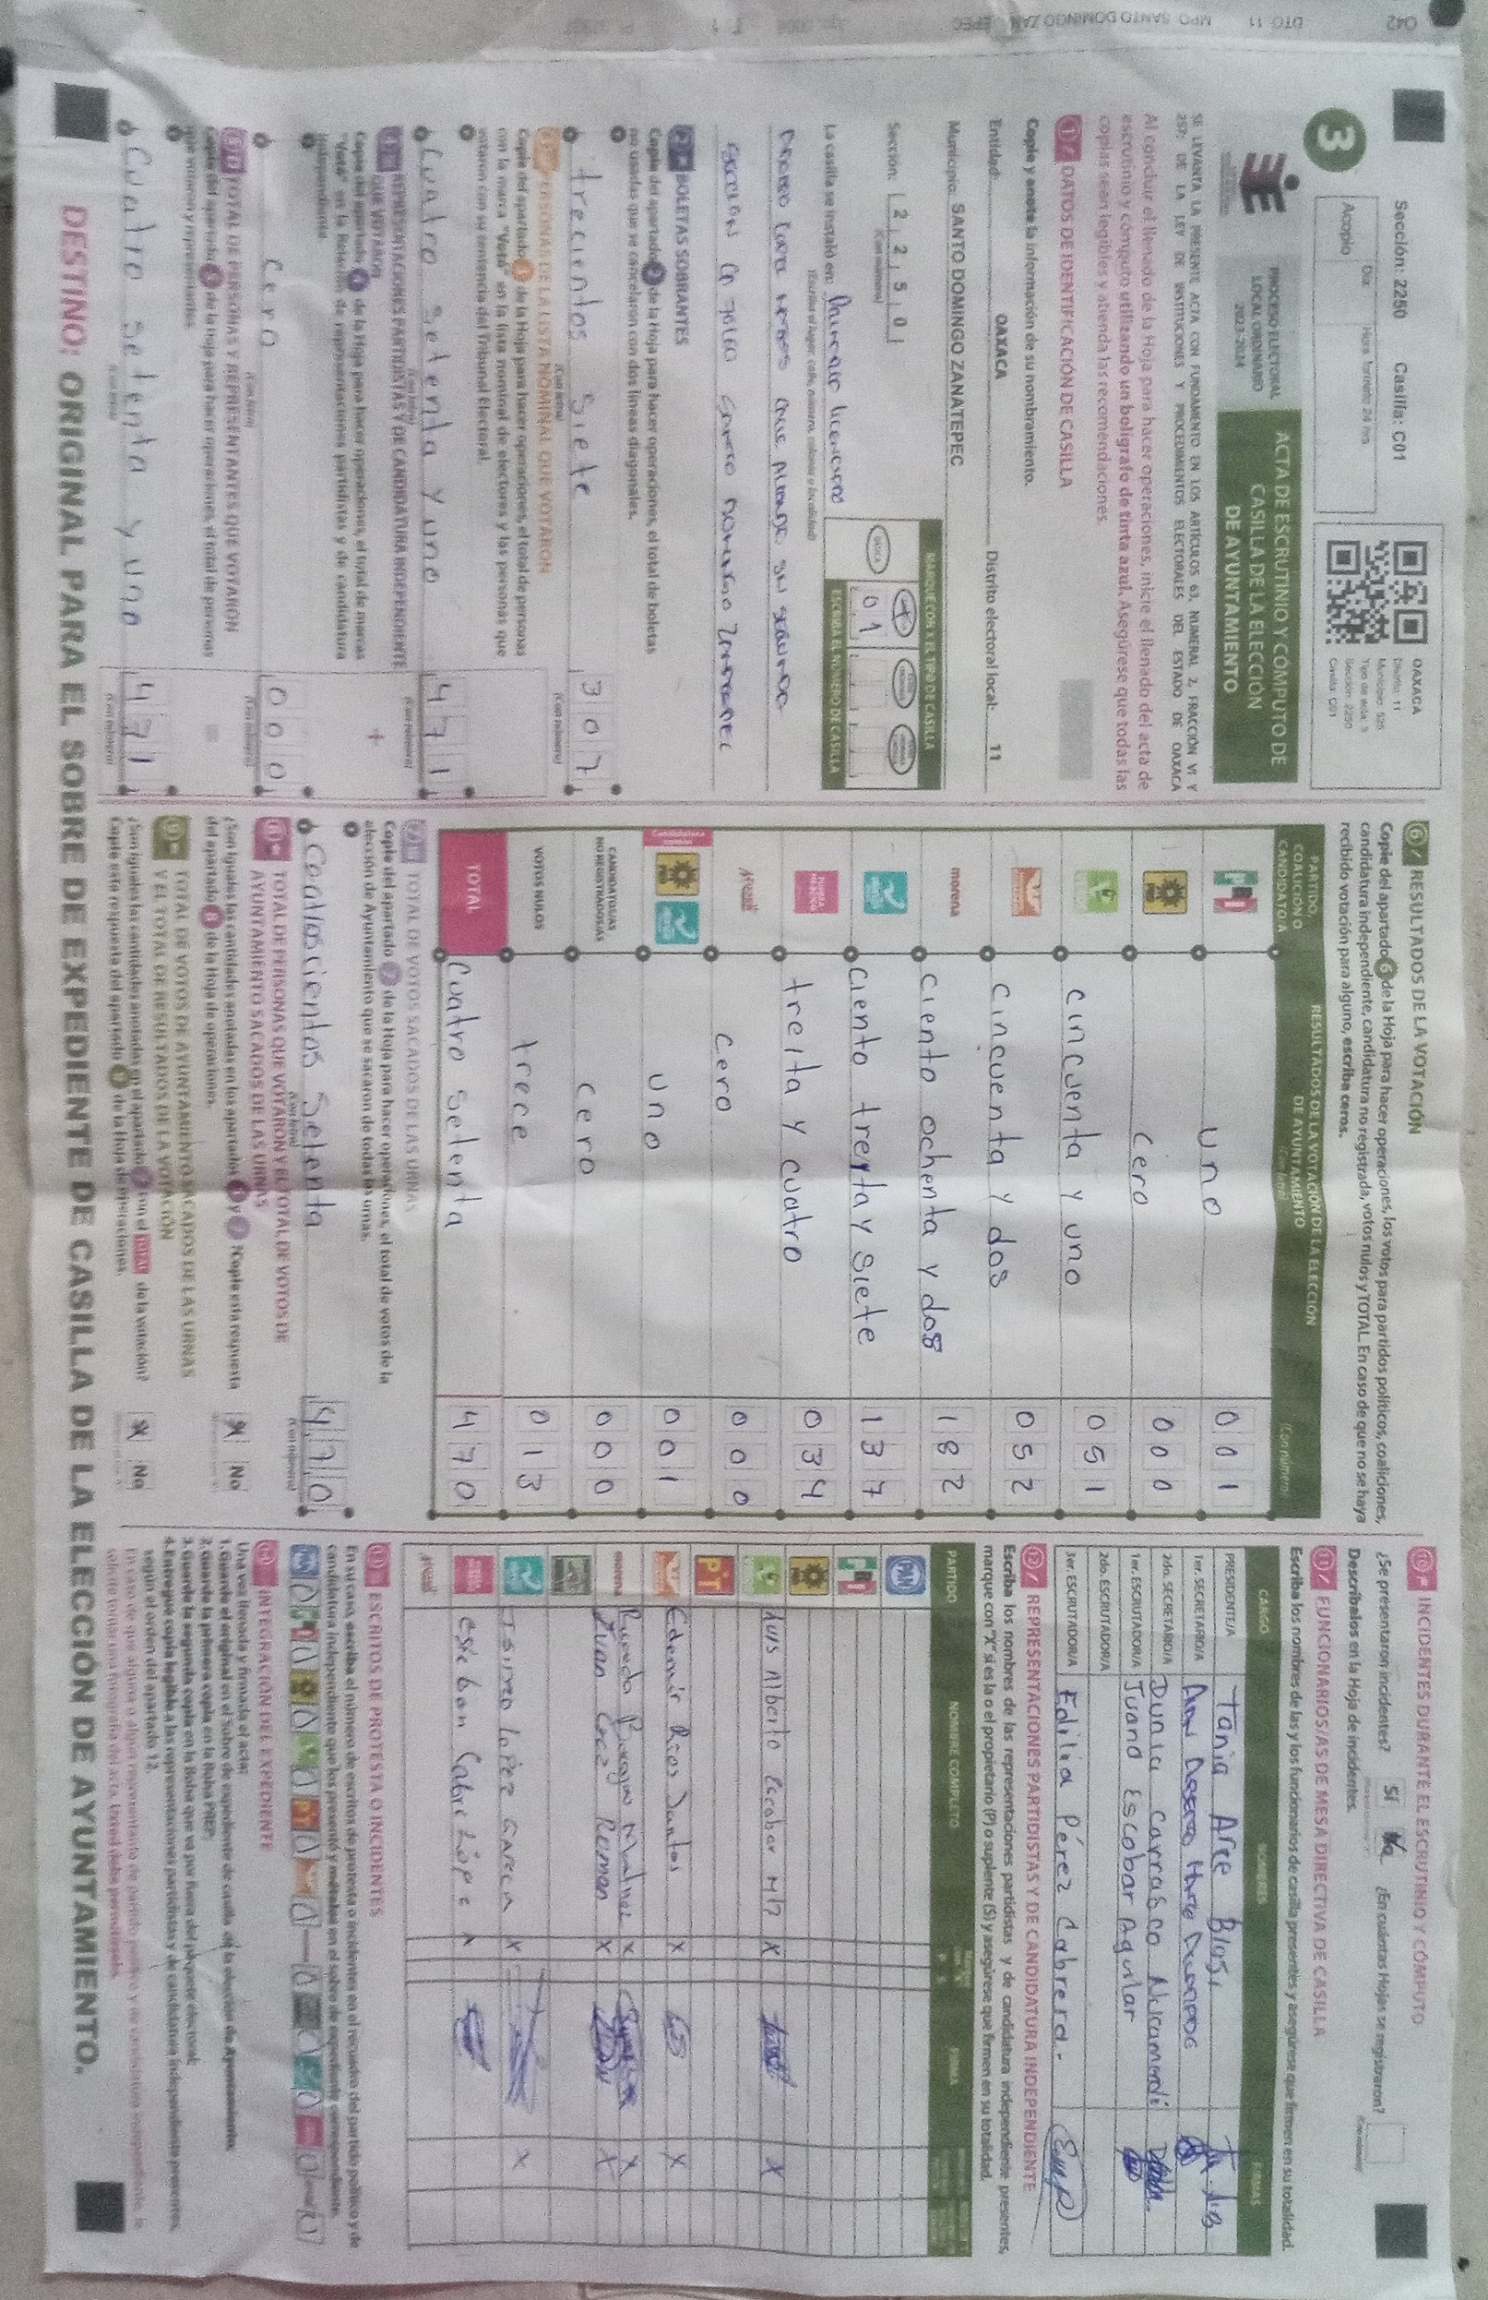 042 DTO 11 MPO SANTO DOMINGO ZANATEPEC
Sección: 2250 Casilla: C01
3
Día: Hora: Formato 24 hrs
Acopio
OAXACA
Distrito: 11
Municipio: 525
Sección: 2250
Casilla: C01
PROCESO ELECTORAL
LOCAL ORDINARIO
2023-2024
ACTA DE ESCRUTINIO Y CÓMPUTO DE
CASILLA DE LA ELECCIÓN
DE AYUNTAMIENTO
SE LEVANTA LA PRESENTE ACTA CON FUNDAMENTO EN LOS ARTÍCULOS 63, NUMERAL 2, FRACCIÓN VI Y
257; DE LA LEY DE INSTITUCIONES Y PROCEDIMIENTOS ELECTORALES DEL ESTADO DE OAXACA
Al concluir el llenado de la Hoja para hacer operaciones, inicie el llenado del acta de
escrutinio y cómputo utilizando un bolígrafo de tinta azul. Asegúrese que todas las
copias sean legibles y atienda las recomendaciones.
1 DATOS DE IDENTIFICACIÓN DE CASILLA
Copie y anote la información de su nombramiento.
Entidad: OAXACA Distrito electoral local: 11
Municipio: SANTO DOMINGO ZANATEPEC
Sección: 2 2 5 0
(Con número)
MARQUE CON X EL TIPO DE CASILLA
BÁSICA
0 1
ESCRIBA EL NÚMERO DE CASILLA
La casilla se instaló en:
(Escriba el lugar: calle, número, colonia o localidad)
2 BOLETAS SOBRANTES
Copie del apartado 2 de la Hoja para hacer operaciones, el total de boletas
no usadas que se cancelaron con dos líneas diagonales.
trecientos siete 3 0 7
(Con letra) (Con número)
3 PERSONAS DE LA LISTA NOMINAL QUE VOTARON
Copie del apartado 3 de la Hoja para hacer operaciones, el total de personas
con la marca "Votó" en la lista nominal de electores y las personas que
votaron con su sentencia del Tribunal Electoral.
Cuatro setenta y uno 4 7 1
(Con letra) (Con número)
4 REPRESENTACIONES PARTIDISTAS Y DE CANDIDATURA INDEPENDIENTE
QUE VOTARON
Copie del apartado 4 de la Hoja para hacer operaciones, el total de marcas
"Votó" en la Relación de representaciones partidistas y de candidatura
independiente
cero 0 0 0
(Con letra) (Con número)
5 TOTAL DE PERSONAS Y REPRESENTANTES QUE VOTARON
Copie del apartado 5 de la Hoja para hacer operaciones, el total de personas
que votaron y representantes.
Cuatro setenta y uno 4 7 1
(Con letra) (Con número)
6 RESULTADOS DE LA VOTACIÓN
Copie del apartado 6 de la Hoja para hacer operaciones, los votos para partidos políticos, coaliciones,
candidatura independiente, candidatura no registrada, votos nulos y TOTAL. En caso de que no se haya
recibido votación para alguno, escriba ceros.
PARTIDO, COALICIÓN O CANDIDATO/A
RESULTADOS DE LA VOTACIÓN DE LA ELECCIÓN
DE AYUNTAMIENTO
(Con letra) (Con número)
PRI uno 0 0 1
PRD Cero 0 0 0
cincuenta y uno 0 5 1
cincuenta y dos 0 5 2
morena ciento ochenta y dos 1 8 2
ciento treyta y siete 1 3 7
FUERZA MÉXICO treita y cuatro 0 3 4
cero 0 0 0
Candidatura común PRD uno 0 0 1
CANDIDATOS/AS NO REGISTRADOS/AS cero 0 0 0
VOTOS NULOS trece 0 1 3
TOTAL Cuatro setenta 4 7 0
7 TOTAL DE VOTOS SACADOS DE LAS URNAS
Copie del apartado 7 de la Hoja para hacer operaciones, el total de votos de la
elección de Ayuntamiento que se sacaron de todas las urnas.
Cuatroscientos setenta 4 7 0
(Con letra) (Con número)
8 TOTAL DE PERSONAS QUE VOTARON Y EL TOTAL DE VOTOS DE
AYUNTAMIENTO SACADOS DE LAS URNAS
¿Son iguales las cantidades anotadas en los apartados 5 y 7? Copie esta respuesta
del apartado 8 de la Hoja de operaciones.
No
9 TOTAL DE VOTOS DE AYUNTAMIENTO SACADOS DE LAS URNAS
Y EL TOTAL DE RESULTADOS DE LA VOTACIÓN
¿Son iguales las cantidades anotadas en el apartado 7 con el TOTAL de la votación?
Copie esta respuesta del apartado 9 de la Hoja de operaciones.
No
10 INCIDENTES DURANTE EL ESCRUTINIO Y CÓMPUTO
¿Se presentaron incidentes? Sí No ¿En cuántas Hojas se registraron?
(Con número)
Descríbalos en la Hoja de incidentes.
11 FUNCIONARIOS/AS DE MESA DIRECTIVA DE CASILLA
Escriba los nombres de las y los funcionarios de casilla presentes y asegúrese que firmen en su totalidad.
CARGO NOMBRES FIRMAS
PRESIDENTE/A Tania Arce Blas
1er. SECRETARIO/A
2do. SECRETARIO/A Dunia Carrasco Nicamendi
1er. ESCRUTADOR/A Juana Escobar Aguilar
2do. ESCRUTADOR/A
3er. ESCRUTADOR/A Edilia Pérez Cabrera.
12 REPRESENTACIONES PARTIDISTAS Y DE CANDIDATURA INDEPENDIENTE
Escriba los nombres de las representaciones partidistas y de candidatura independiente presentes,
marque con "X" si es la o el propietario (P) o suplente (S) y asegúrese que firmen en su totalidad.
PARTIDO NOMBRE COMPLETO FIRMA
PAN
PRI
PRD
Luis Alberto Escobar X X
PT
Edemir Rios Santos X X
morena X X
Juan X X
Isidro Lopez Garcia X X
esteban Cabre López X
13 ESCRITOS DE PROTESTA O INCIDENTES
En su caso, escriba el número de escritos de protesta o incidentes en el recuadro del partido político y de
candidatura independiente que los presentó y métalos en el sobre de expediente correspondiente.
14 INTEGRACIÓN DEL EXPEDIENTE
Una vez llenada y firmada el acta:
1. Guarde el original en el Sobre de expediente de casilla de la elección de Ayuntamiento;
2. Guarde la primera copia en la Bolsa PREP;
3. Guarde la segunda copia en la Bolsa que va por fuera del paquete electoral;
4. Entregue copia legible a las representaciones partidistas y de candidatura independiente presentes,
según el orden del apartado 12.
DESTINO: ORIGINAL PARA EL SOBRE DE EXPEDIENTE DE CASILLA DE LA ELECCIÓN DE AYUNTAMIENTO.